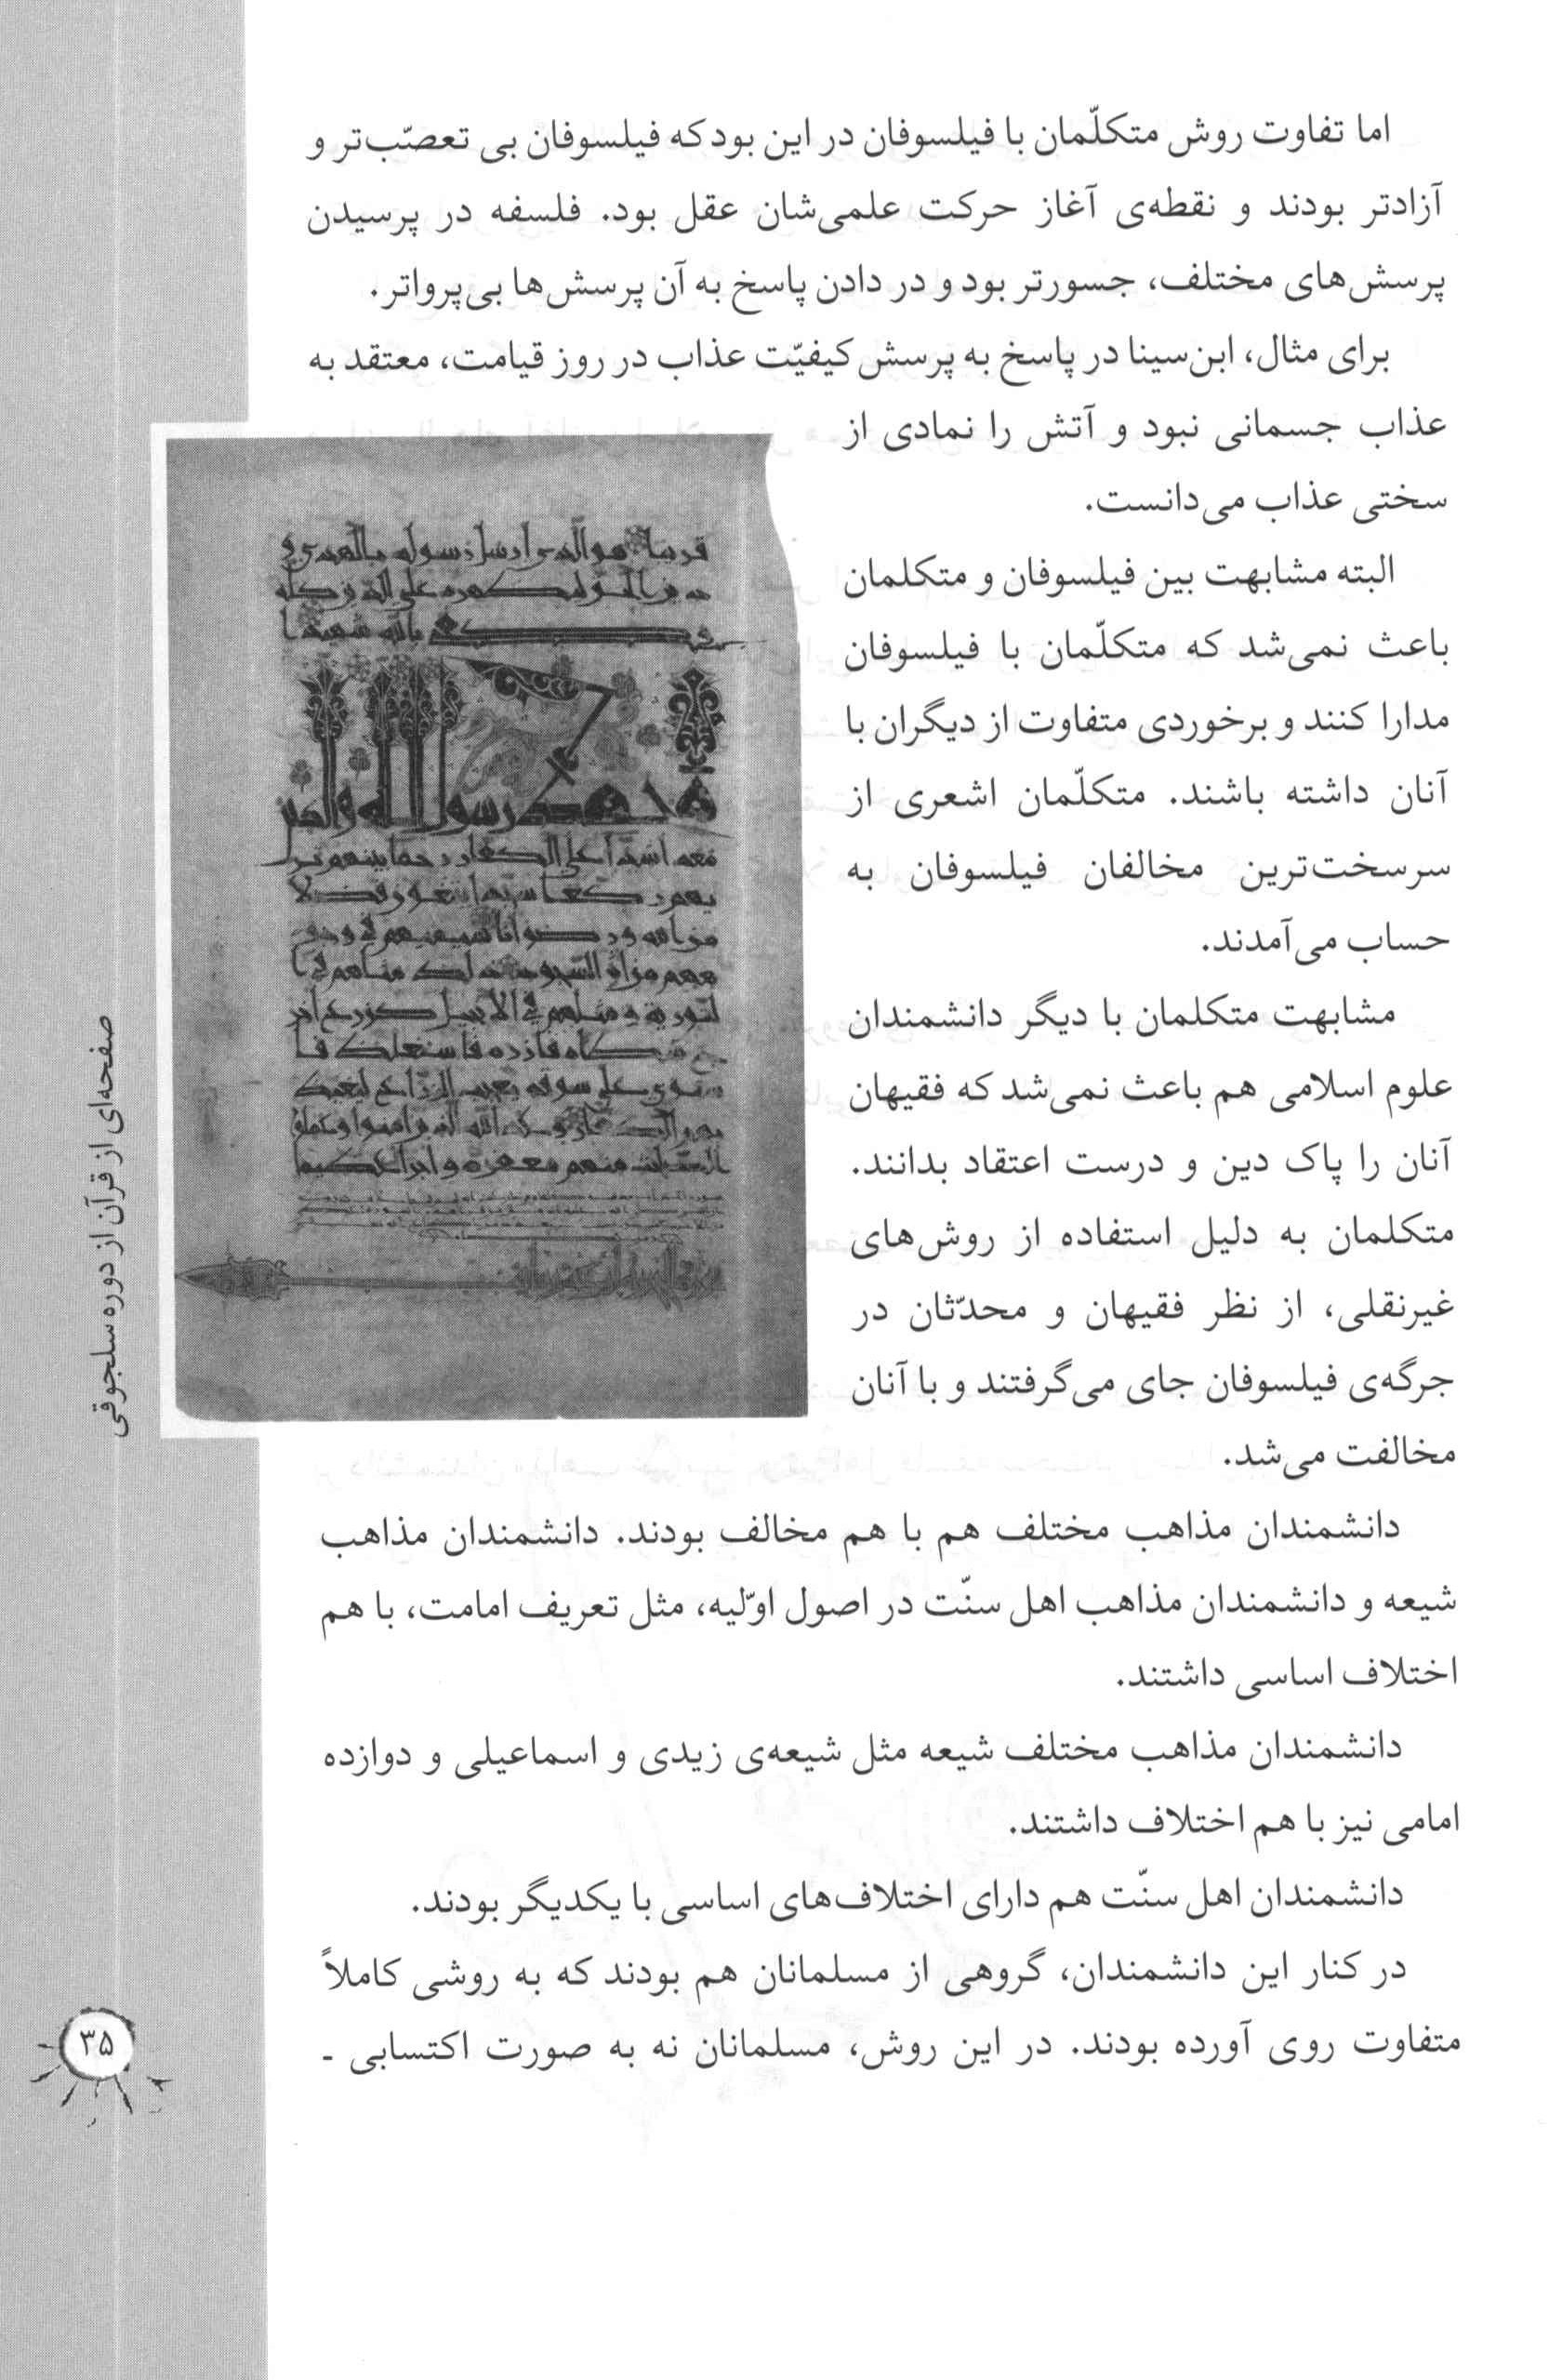 اما تفاوت روش متکلّمان با فیلسوفان در این بود که فیلسوفان بی تعصّب‌تر و
آزادتر بودند و نقطه‌ی آغاز حرکت علمی‌شان عقل بود. فلسفه در پرسیدن
پرسش‌های مختلف، جسورتر بود و در دادن پاسخ به آن پرسش‌ها بی‌پرواتر.
برای مثال، ابن‌سینا در پاسخ به پرسش کیفیّت عذاب در روز قیامت، معتقد به
عذاب جسمانی نبود و آتش را نمادی از
سختی عذاب می‌دانست.
البته مشابهت بین فیلسوفان و متکلمان
باعث نمی‌شد که متکلّمان با فیلسوفان
مدارا کنند و برخوردی متفاوت از دیگران با
آنان داشته باشند. متکلّمان اشعری از
سرسخت‌ترین مخالفان فیلسوفان به
حساب می‌آمدند.
مشابهت متکلمان با دیگر دانشمندان
علوم اسلامی هم باعث نمی‌شد که فقیهان
آنان را پاک دین و درست اعتقاد بدانند.
متکلمان به دلیل استفاده از روش‌های
غیرنقلی، از نظر فقیهان و محدّثان در
جرگه‌ی فیلسوفان جای می‌گرفتند و با آنان
مخالفت می‌شد.
دانشمندان مذاهب مختلف هم با هم مخالف بودند. دانشمندان مذاهب
شیعه و دانشمندان مذاهب اهل سنّت در اصول اوّلیه، مثل تعریف امامت، با هم
اختلاف اساسی داشتند.
دانشمندان مذاهب مختلف شیعه مثل شیعه‌ی زیدی و اسماعیلی و دوازده
امامی نیز با هم اختلاف داشتند.
دانشمندان اهل سنّت هم دارای اختلاف‌های اساسی با یکدیگر بودند.
در کنار این دانشمندان، گروهی از مسلمانان هم بودند که به روشی کاملاً
متفاوت روی آورده بودند. در این روش، مسلمانان نه به صورت اکتسابی ـ
صفحه‌ای از قرآن از دوره سلجوقی
محمد رسول الله والذین
۳۵